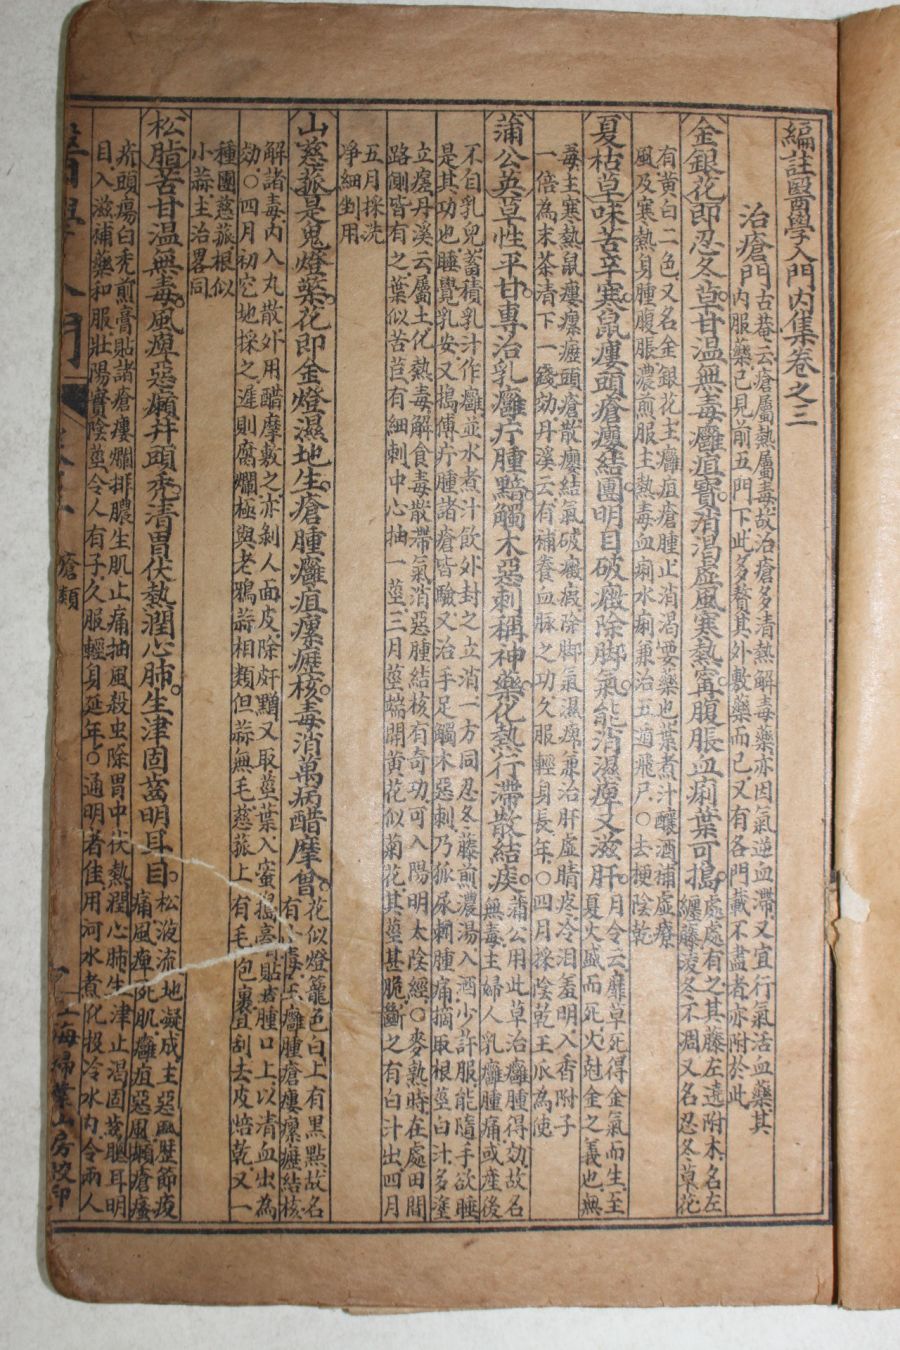 編註醫學入門內集卷之三
治瘡門 古菴云瘡屬熱屬毒故治瘡多清熱解毒藥亦因氣逆血滯又宜行氣活血藥其
內服藥已見前五門下此多贅其外敷藥而已又有各門載不盡者亦附於此
金銀花即忍冬草甘溫無毒癰疽寶消渴虛風寒熱甯腹脹血痢葉可搗 處處有之其藤左遶附木名左
纏藤凌冬不凋又名忍冬草花
有黃白二色又名金銀花主癰疽瘡腫止消渴要藥也葉煮汁釀酒補虛療
風及寒熱身腫腹脹濃煎服主熱毒血痢水痢兼治五遁飛尸○去梗陰乾
夏枯草味苦辛寒鼠瘻頭瘡癭結團明目破癥除脚氣能消濕痺又滋肝 月令云靡草死得金氣而生至
夏火盛而死火尅金之義也無
毒主寒熱鼠瘻瘰癧頭瘡散癭結氣破癥瘕除脚氣濕痺兼治肝虛睛疼冷泪羞明入香附子
一倍為末茶清下一錢効丹溪云有補養血脉之功久服輕身長年○四月採陰乾王瓜為使
蒲公英草性平甘專治乳癰疔腫黯觸木惡刺稱神藥化熱行滯散結痰 蒲公用此草治癰腫得効故名
無毒主婦人乳癰腫痛或產後
不自乳兒蓄積乳汁作癰並水煮汁飲外封之立消一方同忍冬藤煎濃湯入酒少許服能隨手欲睡
是其功也睡覺乳安又搗傅疔腫諸瘡皆驗又治手足觸木惡刺乃狐尿刺腫痛摘取根莖白汁多塗
立瘥丹溪云屬土化熱毒解食毒散滯氣消惡腫結核有奇功可入陽明太陰經○麥熟時在處田間
路側皆有之葉似苦苣有細刺中心抽一莖三月莖端開黃花似菊花其莖甚脆斷之有白汁出四月
五月採洗
凈細坐用
山慈菰是鬼燈藥花即金燈濕地生瘡腫癰疽瘰癧核毒消萬病醋摩曾 花似燈籠色白上有黑點故名
有癰腫瘡瘻瘰癧結核
解諸毒內入丸散外用醋摩敷之亦剝人面皮除皯䵳又取莖葉入蜜搗膏貼瘡腫口上以清血出為
効○四月初宅地採之遲則腐爛極與老鴉蒜相類但蒜無毛慈菰上有毛包裹且刮去皮焙乾又一
種團慈菰根似
小蒜主治畧同
松脂苦甘溫無毒風痺惡癩幷頭禿清胃伏熱潤心肺生津固齒明耳目 松液流地凝成主惡風歷節疫
痛風痺死肌癰疽惡風癩瘡瘙
疥頭瘍白禿煎膏貼諸瘡瘻爛排膿生肌止痛抽風殺虫除胃中伏熱潤心肺生津止渴固齒聰耳明
目入滋補藥和服壯陽實陰莖令人有子久服輕身延年○通明者佳用河水煮化投冷水內令兩人
瘡類
上海掃葉山房校印